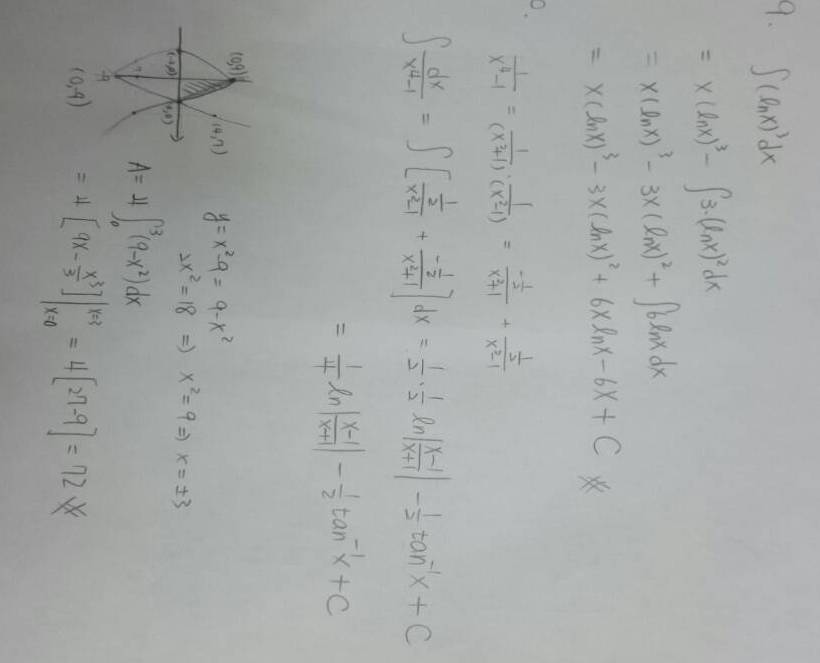 9. ∫(lnx)³dx
= x(lnx)³ - ∫3·(lnx)²dx
= x(lnx)³ - 3x(lnx)² + ∫6lnxdx
= x(lnx)³ - 3x(lnx)² + 6xlnx - 6x + C ※
0.
1/(x⁴-1) = 1/(x²+1) · 1/(x²-1) = (-1/2)/(x²+1) + (1/2)/(x²-1)
∫ dx/(x⁴-1) = ∫[(1/2)/(x²-1) + (-1/2)/(x²+1)]dx = 1/2 · 1/2 ln|(x-1)/(x+1)| - 1/2 tan⁻¹x + C
= 1/4 ln|(x-1)/(x+1)| - 1/2 tan⁻¹x + C
(0,9)
(4,7)
-9
(0,-9)
y = x²-9 = 9-x²
2x² = 18 ⇒ x² = 9 ⇒ x = ±3
A = 4∫₀³(9-x²)dx
= 4[9x - x³/3]|ₓ₌₀ˣ⁼³ = 4[27-9] = 72 ※